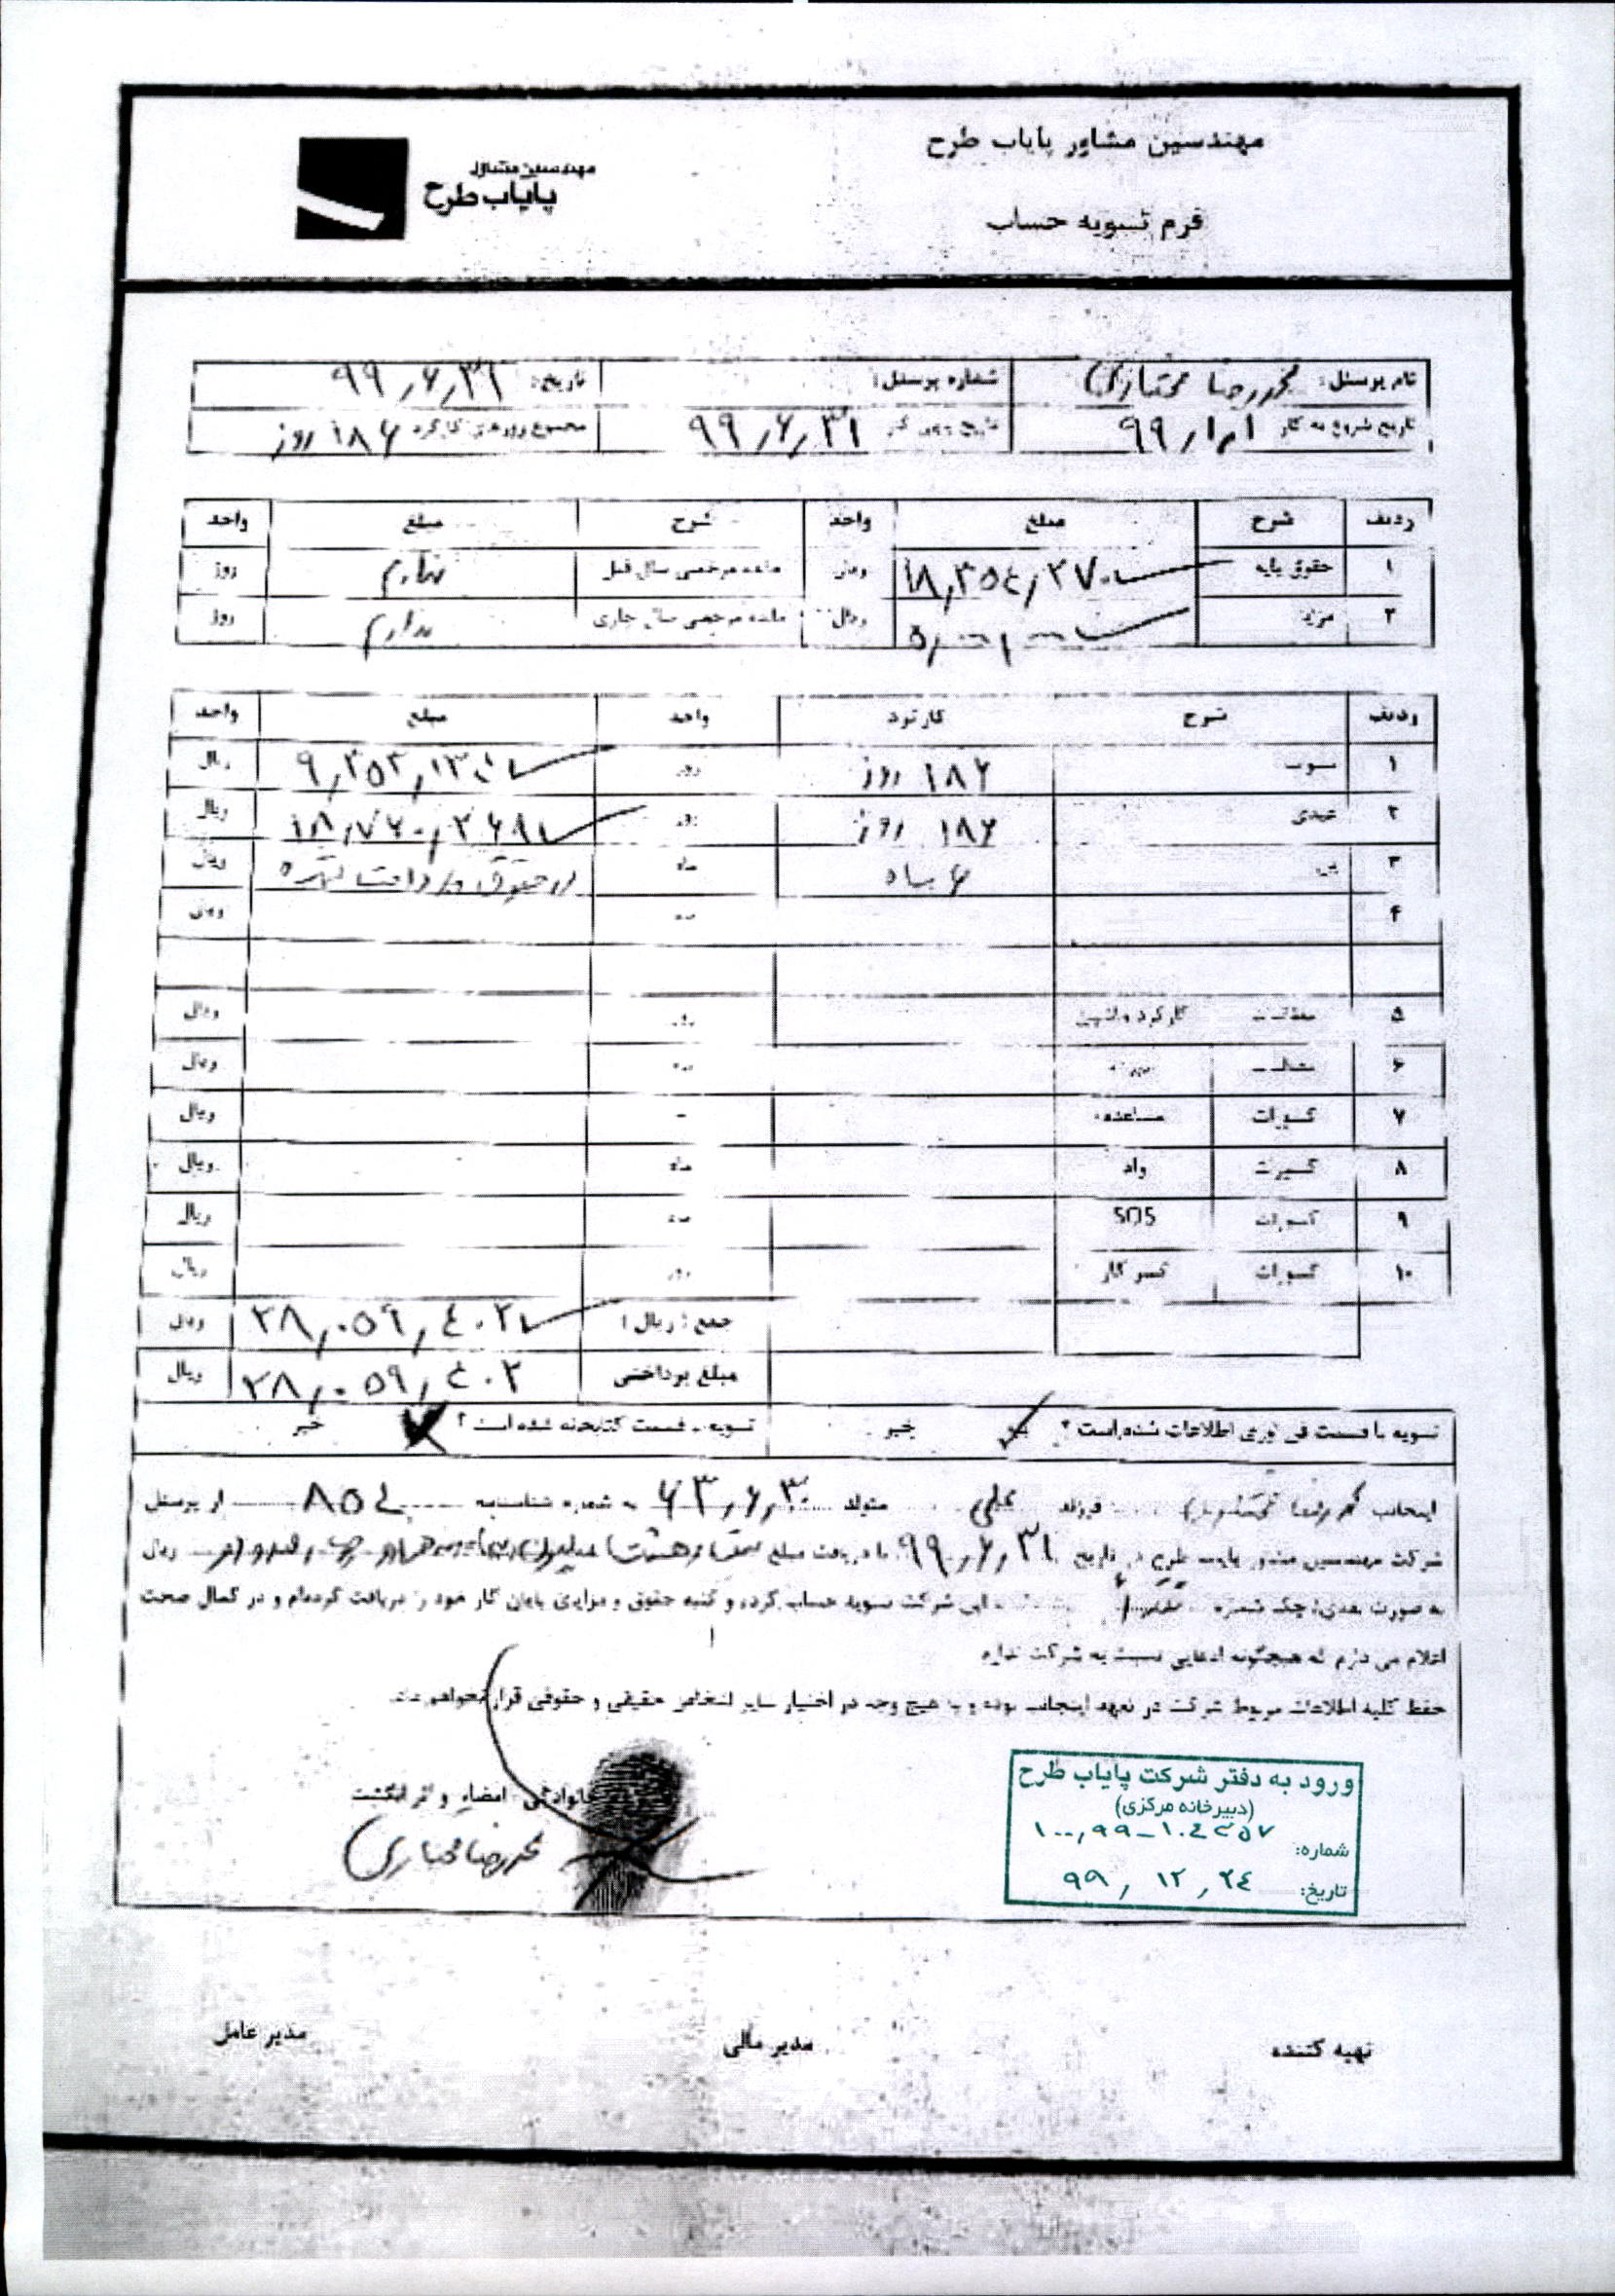 مهندسین مشاور پایاب طرح
مهندسین مشاور
پایاب طرح
فرم تسویه حساب
نام پرسنل: محمدرضا مختاری شماره پرسنل: تاریخ: ۹۹٫۶٫۳۱
تاریخ شروع به کار ۹۹٫۱٫۱ تاریخ ۹۹٫۶٫۳۱ مجموع روزهای کارکرد ۱۸۶ روز
ردیف شرح مبلغ واحد شرح مبلغ واحد
۱ حقوق پایه ۱۸٫۳۵۴٫۲۷۰ ریال مانده مرخصی سال قبل ندارم روز
۲ مزایا ریال مانده مرخصی سال جاری ندارم روز
ردیف شرح کارکرد واحد مبلغ واحد
۱ سنوات ۱۸۶ روز روز ریال
۲ عیدی ۱۸۶ روز روز ریال
۳ بن ۶ ماه ماه در حقوق پرداخت شده ریال
۴ ماه ریال
۵ کارکرد ماشین ریال
۶ ماه ریال
۷ کسورات مساعده - ریال
۸ کسورات وام ماه ریال
۹ کسورات SOS ماه ریال
۱۰ کسورات کسر کار روز ریال
جمع (ریال) ۲۸٫۰۵۹٫۴۰۲ ریال
مبلغ پرداختی ۲۸٫۰۵۹٫۴۰۲ ریال
تسویه با قسمت فن آوری اطلاعات شده است؟ بلی خیر تسویه با قسمت کتابخانه شده است؟ خیر
اینجانب محمدرضا مختاری فرزند علی متولد ۶۳٫۶٫۳۰ به شماره شناسنامه از پرسنل
شرکت مهندسین مشاور پایاب طرح در تاریخ ۹۹٫۶٫۳۱ با دریافت مبلغ ریال
به صورت نقدی/چک شماره با این شرکت تسویه حساب کرده و کلیه حقوق و مزایای پایان کار خود را دریافت کرده‌ام و در کمال صحت
اعلام می دارم که هیچگونه ادعایی نسبت به شرکت ندارم
حفظ کلیه اطلاعات مربوط شرکت در تعهد اینجانب بوده و به هیچ وجه در اختیار سایر اشخاص حقیقی و حقوقی قرار نخواهم داد.
خانوادگی امضاء و اثر انگشت
محمدرضا مختاری
ورود به دفتر شرکت پایاب طرح
(دبیرخانه مرکزی)
شماره: ۱۰۰٫۹۹-۱۰۴۳۵۷
تاریخ: ۹۹٫۱۲٫۲۴
تهیه کننده مدیر مالی مدیر عامل